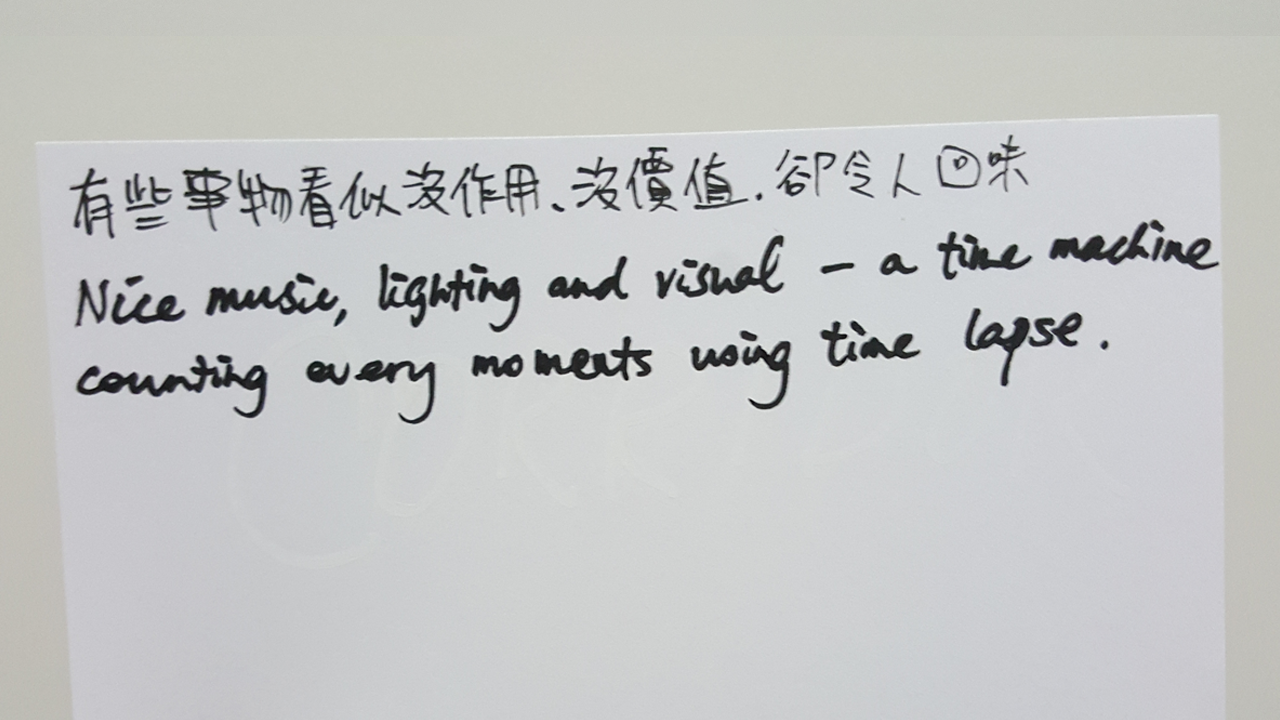 有些事物看似沒作用、沒價值，卻令人回味
Nice music, lighting and visual – a time machine
counting every moments using time lapse.